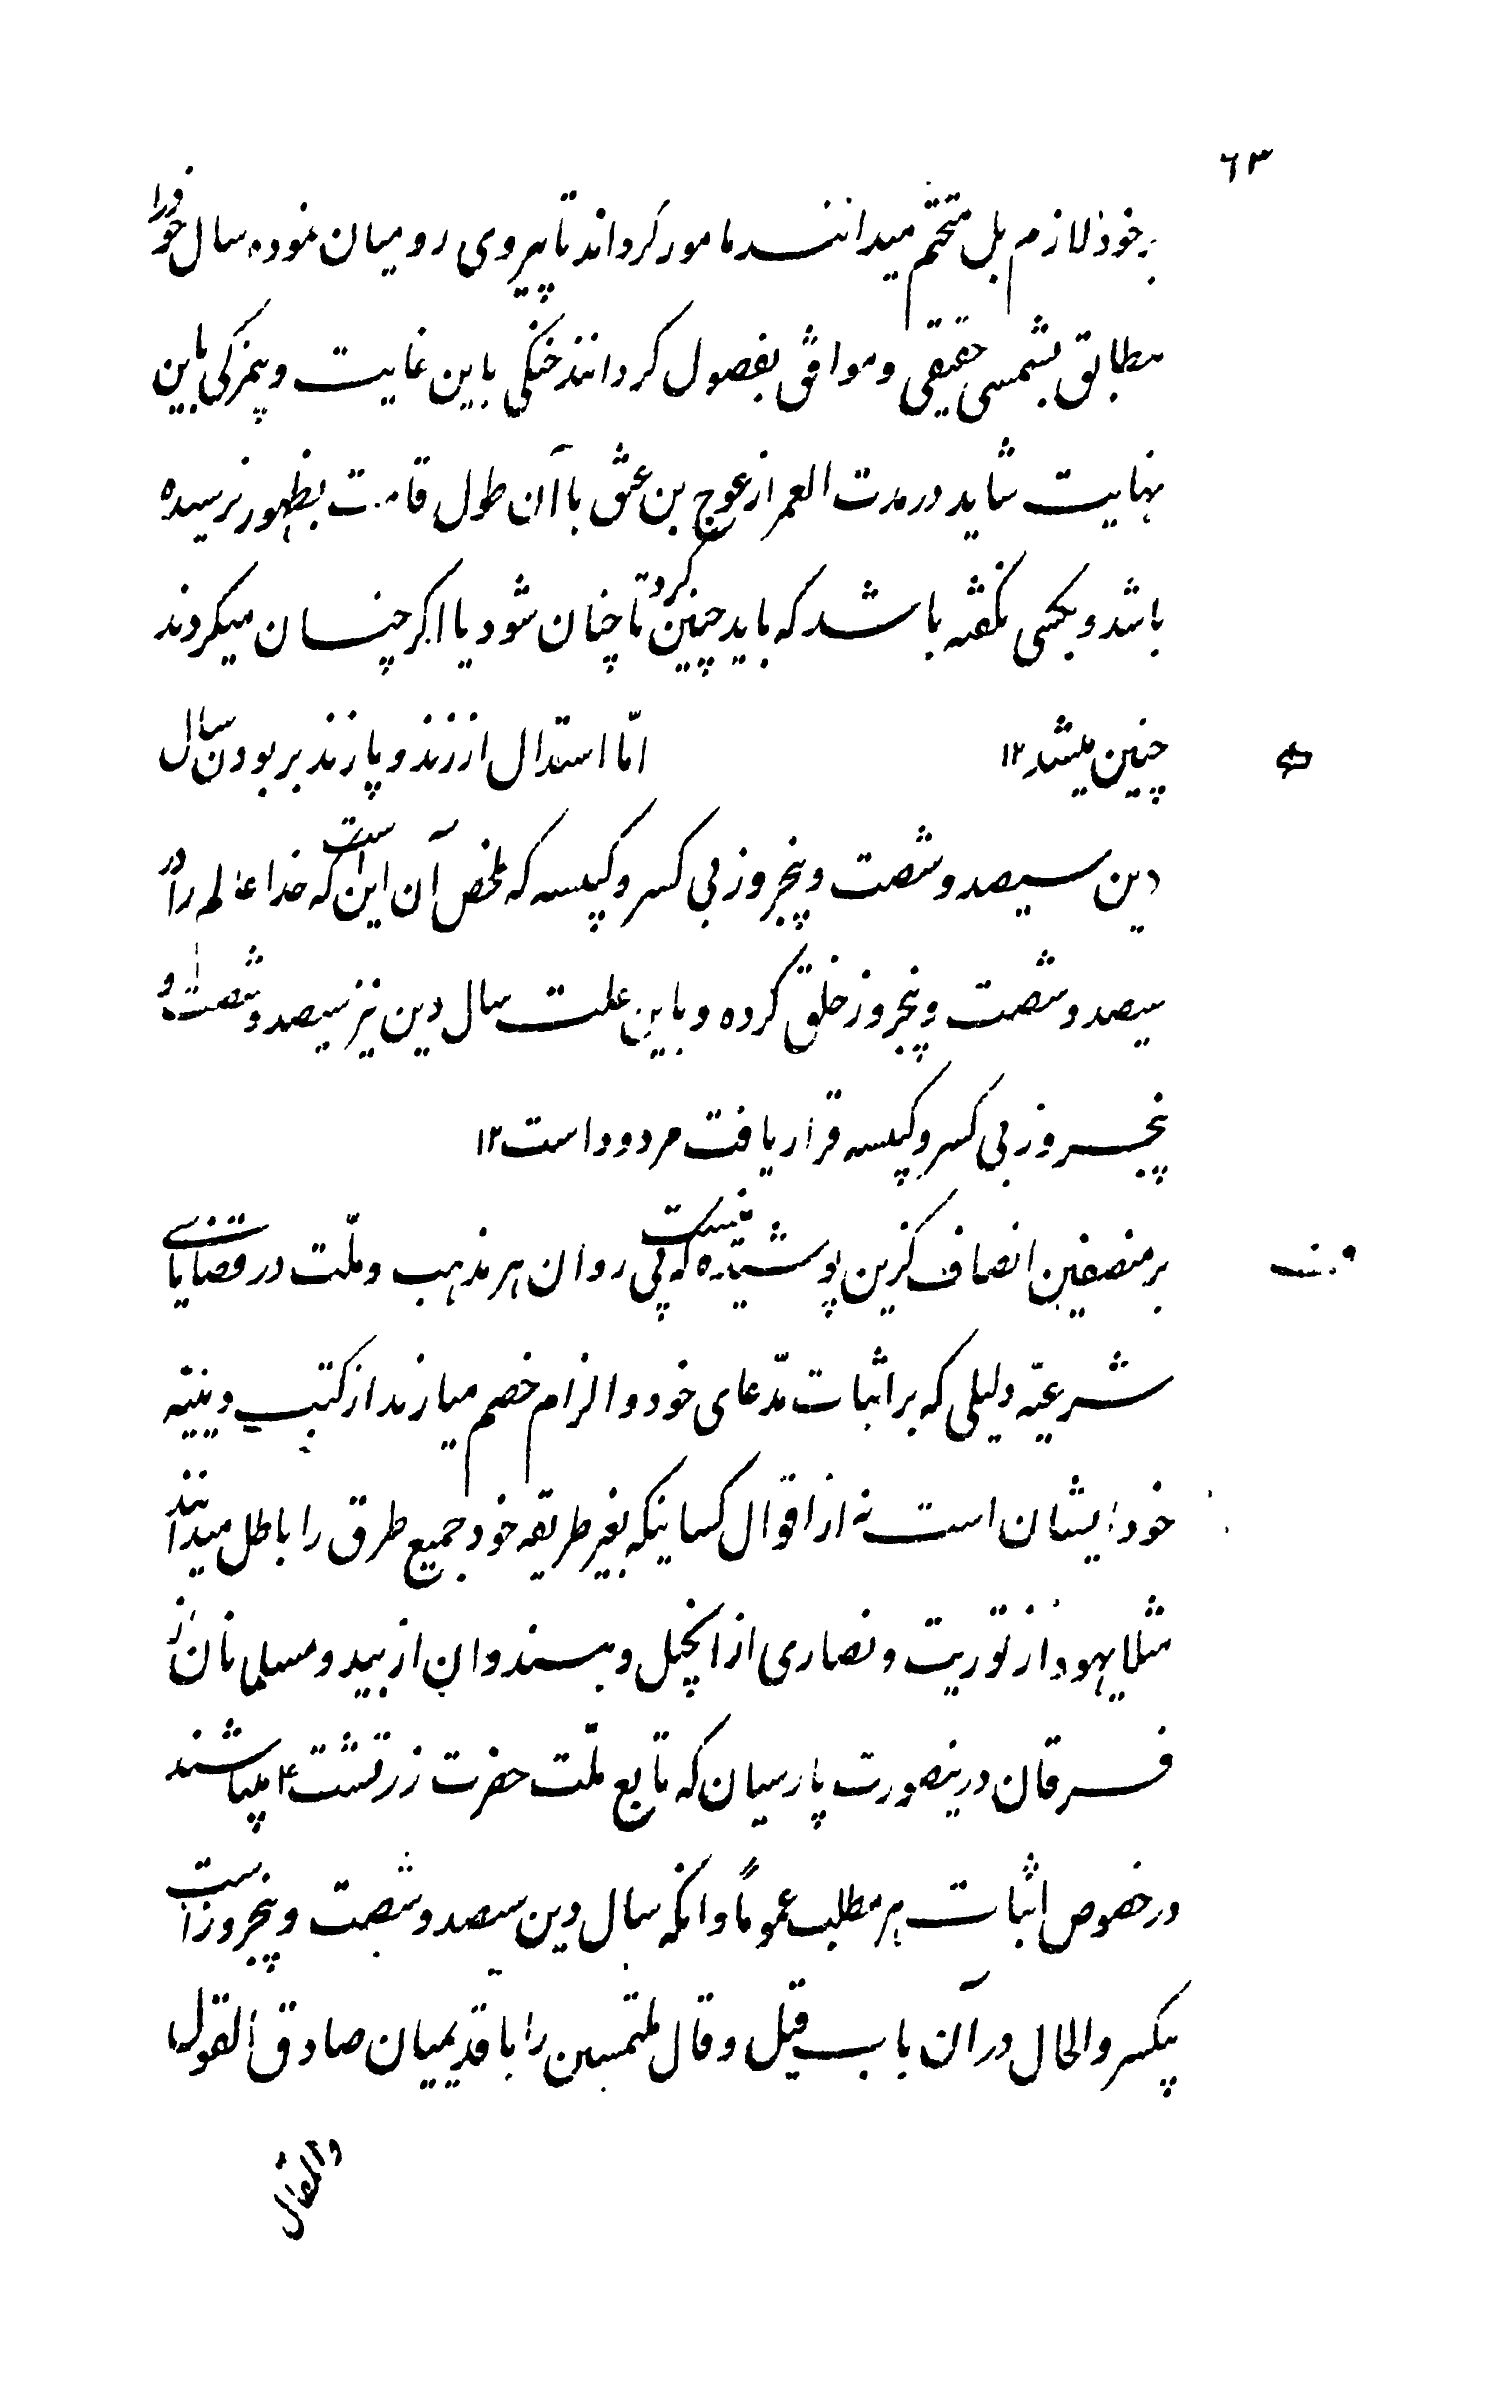 ٦٣
برخود لازم بل متحتم میدانند مامور کرداند تا پیروی رومیان نموده سال خودرا
مطابق بشمسی حقیقی و موافق بفصول کردانند خنکی باین غایت و بیمزکی باین
نهایت شاید در مدت العمر از عوج بن عنق باآن طول قامت بظهور نرسیده
باشد و بکسی نکفته باشد که باید چنین کرد تا چنان شود یا اکر چنسان میکردند
چنین میشد ۱۲ اما استدال از زند و پازند بر بودن سال
دین سیصد و شصت و پنجروز بی کسر و کبیسه که ملخص آن این است که خدا عالم را در
سیصد و شصت و پنجروز خلق کرده و باین علت سال دین نیز سیصد و شصت و
پنجروز بی کسر و کبیسه قرار یافت مردود است ۱۲
بر منصفین انصاف کزین پوشیده نیست که پی روان هر مذهب و ملّت در قضایای
شرعیّه دلیلی که بر اثبات مدّعای خود و الزام خصم میارند از کتب دینیّه
خود ایشان است نه از اقوال کسانیکه بغیر طریقه خود جمیع طرق را باطل میدانند
مثلا یهود از توریت و نصاری از انجیل و هندوان از بید و مسلمانان از
فرقان درینصورت پارسیان که تابع ملّت حضرت زرتشت ۴ میباشند
در خصوص اثبات هر مطلب عموماً و انکه سال دین سیصد و شصت و پنجروز است
بیکسر والحال در آن باب قیل و قال ملتمسین را با قدیمیان صادق القول
والمقال